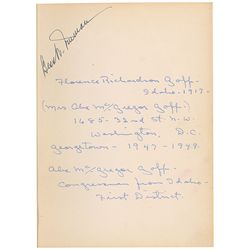 Bess W. Truman
Florence Richardson Goff -
Idaho - 1917 -
(Mrs Abe McGregor Goff.)
1485 - 32nd St. N.W.
Washington, D.C.
Georgetown - 1947 - 1948.
Abe McGregor Goff -
Congressman from Idaho -
First District.